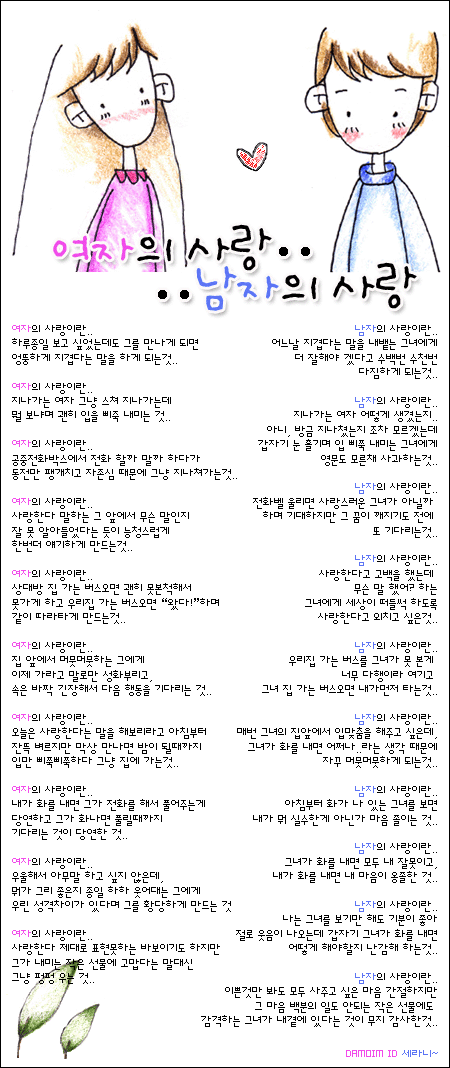 여자의 사랑..
..남자의 사랑
여자의 사랑이란..
하루종일 보고 싶었는데도 그를 만나게 되면
엉뚱하게 지겹다는 말을 하게 되는것..
여자의 사랑이란..
지나가는 여자 그냥 스쳐 지나가는데
뭘 보냐며 괜히 입을 삐쭉 내미는 것..
여자의 사랑이란..
공중전화박스에서 전화 할까 말까 하다가
동전만 팽개치고 자존심 때문에 그냥 지나쳐가는것..
여자의 사랑이란..
사랑한다 말하는 그 앞에서 무슨 말인지
잘 못 알아들었다는 듯이 능청스럽게
한번더 얘기하게 만드는것..
여자의 사랑이란..
상대방 집 가는 버스오면 괜히 못본척해서
못가게 하고 우리집 가는 버스오면 “왔다!”하며
같이 따라타게 만드는것..
여자의 사랑이란..
집 앞에서 머뭇머뭇하는 그에게
이제 가라고 말로만 성화부리고,
속은 바짝 긴장해서 다음 행동을 기다리는 것..
여자의 사랑이란..
오늘은 사랑한다는 말을 해보리라고 아침부터
잔뜩 벼르지만 막상 만나면 밤이 될때까지
입만 삐쭉삐쭉하다 그냥 집에 가는것..
여자의 사랑이란..
내가 화를 내면 그가 전화를 해서 풀어주는게
당연하고 그가 화나면 풀릴때까지
기다리는 것이 당연한 것..
여자의 사랑이란..
우울해서 아무말 하고 싶지 않은데,
뭐가 그리 좋은지 종일 하하 웃어대는 그에게
우린 성격차이가 있다며 그를 황당하게 만드는 것
여자의 사랑이란..
사랑한다 제대로 표현못하는 바보이기도 하지만
그가 내미는 작은 선물에 고맙다는 말대신
그냥 펑펑 우는 것..
남자의 사랑이란..
어느날 지겹다는 말을 내뱉는 그녀에게
더 잘해야 겠다고 수백번 수천번
다짐하게 되는것..
남자의 사랑이란..
지나가는 여자 어떻게 생겼는지..
아니, 방금 지나쳤는지 조차 모르겠는데
갑자기 눈 흘기며 입 삐쭉 내미는 그녀에게
영문도 모른채 사과하는것..
남자의 사랑이란..
전화벨 울리면 사랑스러운 그녀가 아닐까
하며 기대하지만 그 꿈이 깨지기도 전에
또 기다리는것..
남자의 사랑이란..
사랑한다고 고백을 했는데
무슨 말 했어? 하는
그녀에게 세상이 떠들썩 하도록
사랑한다고 외치고 싶은것..
남자의 사랑이란..
우리집 가는 버스를 그녀가 못 본게
너무 다행이라 여기고
그녀 집 가는 버스오면 내가먼저 타는것..
남자의 사랑이란..
매번 그녀의 집앞에서 입맞춤을 해주고 싶은데,
그녀가 화를 내면 어쩌나.. 라는 생각 때문에
자꾸 머뭇머뭇하게 되는것..
남자의 사랑이란..
아침부터 화가 나 있는 그녀를 보면
내가 뭐 실수한게 아닌가 마음 졸이는 것..
남자의 사랑이란..
그녀가 화를 내면 모두 내 잘못이고,
내가 화를 내면 내 마음이 옹졸한 것..
남자의 사랑이란..
나는 그녀를 보기만 해도 기분이 좋아
절로 웃음이 나오는데 갑자기 그녀가 화를 내면
어떻게 해야할지 난감해 하는것..
남자의 사랑이란..
이쁜것만 봐도 모두 사주고 싶은 마음 간절하지만
그 마음 백분의 일도 안되는 작은 선물에도
감격하는 그녀가 내곁에 있다는 것이 무지 감사한것..
DAMOIM ID 세라니~